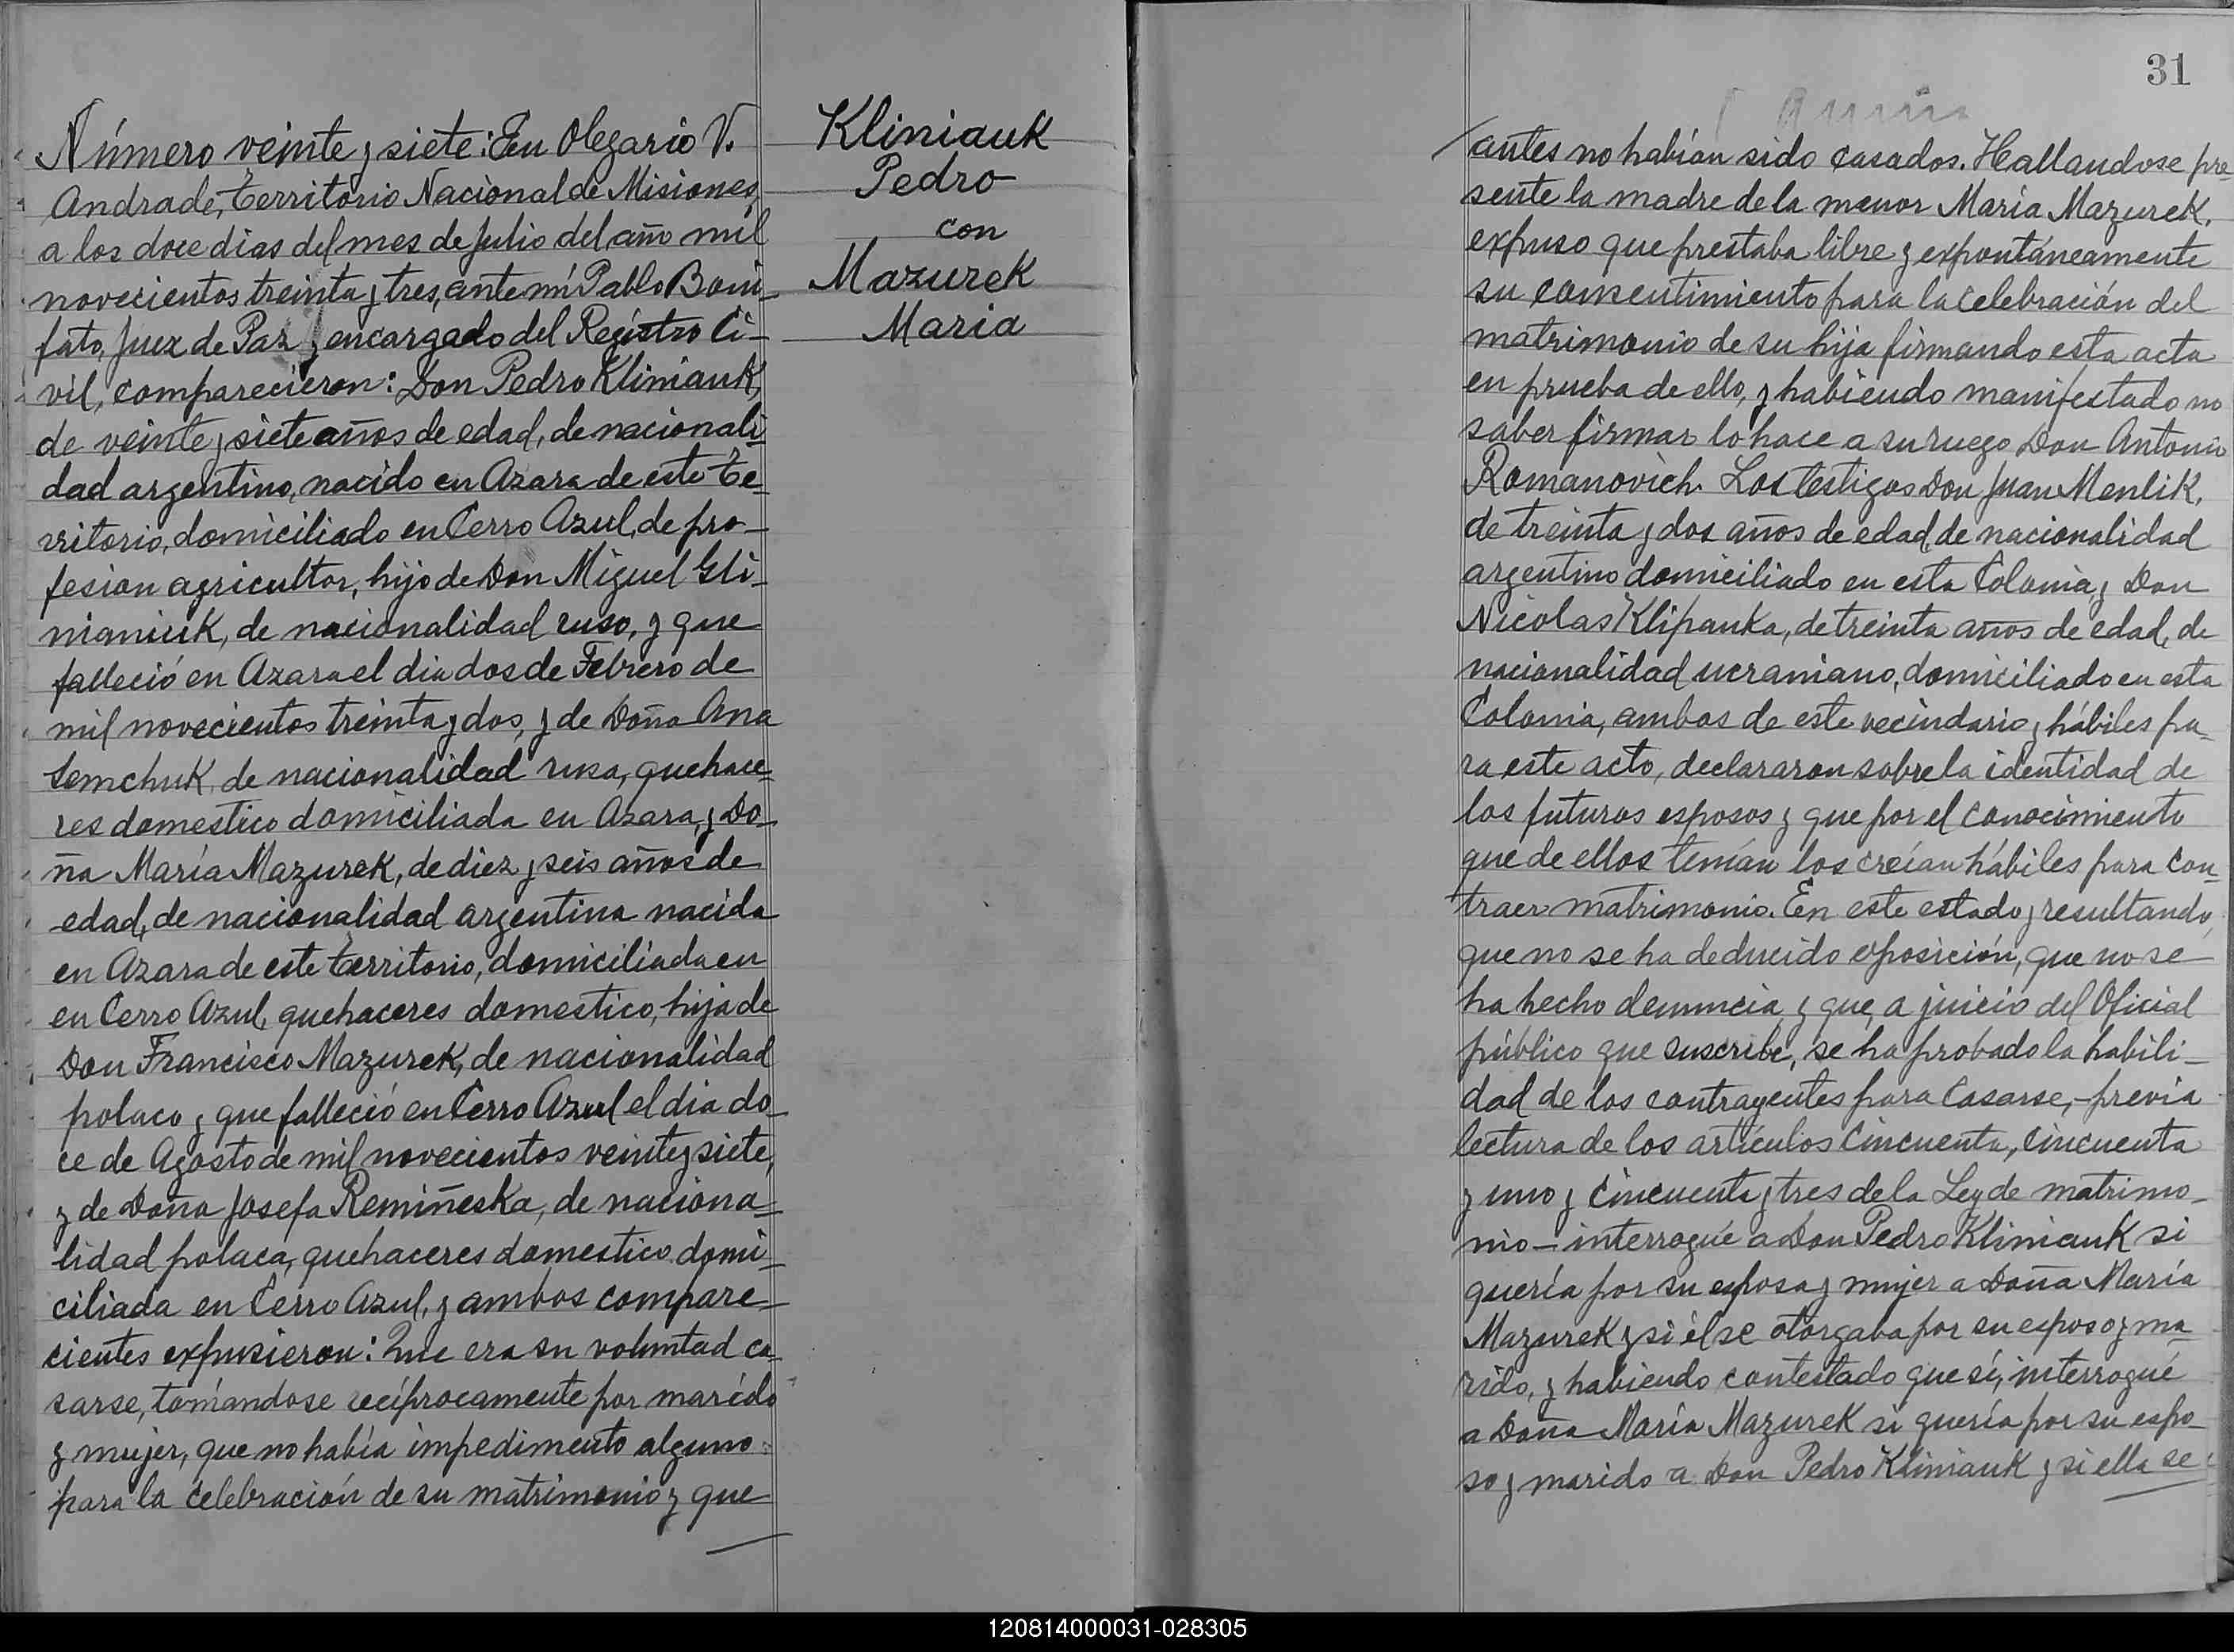 Número veinte y siete: En Olegario V.
Andrade, territorio Nacional de Misiones,
a los doce dias del mes de Julio del año mil
novecientos treinta y tres, ante mí Pablo Boni-
fato, Juez de Paz y encargado del Registro Ci-
vil, comparecieron: Don Pedro Kliniauk,
de veinte y siete años de edad, de nacionali-
dad argentino, nacido en Azara de este te-
rritorio, domiciliado en Cerro Azul, de pro-
fesion agricultor, hijo de Don Miguel Gli-
nianiuk, de nacionalidad ruso, y que
falleció en Azara el dia dos de Febrero de
mil novecientos treinta y dos, y de Doña Ana
Semchuk, de nacionalidad rusa, quehace-
res domestico domiciliada en Azara, y Do-
ña María Mazurek, de diez y seis años de
edad, de nacionalidad argentina nacida
en Azara de este territorio, domiciliada en
en Cerro Azul, quehaceres domestico, hija de
Don Francisco Mazurek, de nacionalidad
polaco y que falleció en Cerro Azul el dia do-
ce de Agosto de mil novecientos veinte y siete,
y de Doña Josefa Remiñeska, de naciona-
lidad polaca, quehaceres domestico domi-
ciliada en Cerro Azul, y ambos compare-
cientes expusieron: Que era su voluntad ca-
sarse, tomándose recíprocamente por marido
y mujer, que no había impedimento alguno
para la celebración de su matrimonio y que
Kliniauk
Pedro
con
Mazurek
Maria
31
antes no habían sido casados. Hallandose pre-
sente la madre de la menor María Mazurek,
expuso que prestaba libre y expontáneamente
su consentimiento para la celebración del
matrimonio de su hija firmando esta acta
en prueba de ello, y habiendo manifestado no
saber firmar lo hace a su ruego Don Antonio
Romanovich. Los testigos Don Juan Menlik,
de treinta y dos años de edad, de nacionalidad
argentino domiciliado en esta Colonia, y Don
Nicolas Klipauka, de treinta años de edad, de
nacionalidad ucraniano, domiciliado en esta
Colonia, ambos de este vecindario y hábiles pa-
ra este acto, declararon sobre la identidad de
los futuros esposos y que por el conocimiento
que de ellos tenían los creían hábiles para con-
traer matrimonio. En este estado y resultando,
que no se ha deducido oposición, que no se
ha hecho denuncia y que, a juicio del Oficial
público que suscribe, se ha probado la habili-
dad de los contrayentes para casarse, -previa
lectura de los artículos cincuenta, cincuenta
y uno y cincuenta y tres de la Ley de matrimo-
nio - interrogué a Don Pedro Kliniauk si
quería por su esposa y mujer a Doña María
Mazurek y si él se otorgaba por su esposo y ma-
rido, y habiendo contestado que sí, interrogué
a Doña María Mazurek si quería por su espo-
so y marido a Don Pedro Kliniauk y si ella se
120814000031-028305